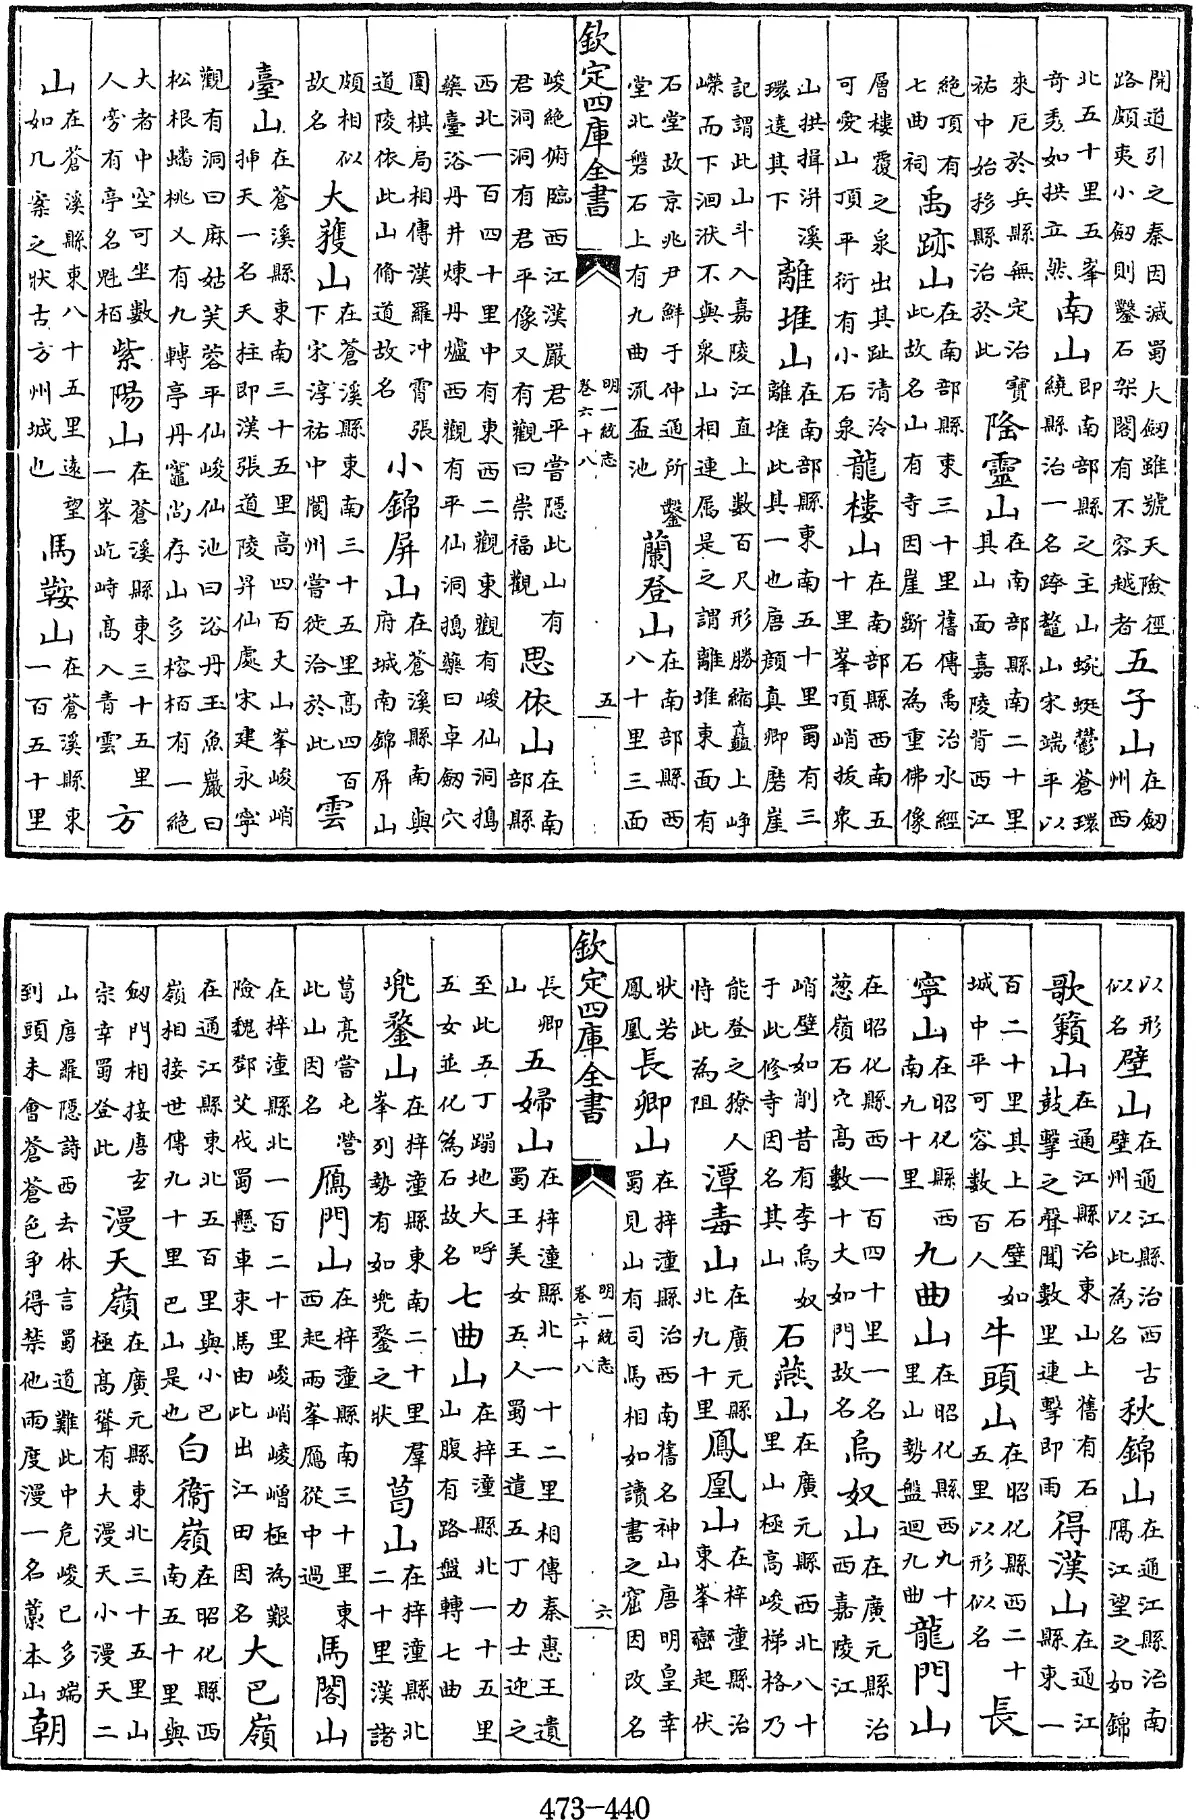 開道引之秦因滅蜀大劒雖號天險徑路頗夷小劒則鑿石架閣有不容越者五子山在劒州西
北五十里五峯奇秀如拱立然南山即南部縣之主山蜿蜒鬱蒼環繞縣治一名跨鼇山宋端平以
來厄於兵縣無定治寶祐中始移縣治於此靈山在南部縣南二十里其山面嘉陵背西江
絶頂有七曲祠禹跡山在南部縣東三十里舊傳禹治水經此故名山有寺因崖斷石為重佛像
層樓覆之泉出其趾清泠可愛山頂平衍有小石泉龍樓山在南部縣西南五十里峯頂峭拔衆
山拱揖洴溪環遶其下離堆山在南部縣東南五十里蜀有三離堆此其一也唐顔真卿磨崖
記謂此山斗入嘉陵江直上數百尺形勝縮矗上峥嶸而下洄洑不與衆山相連屬是之謂離堆東面有
石堂故京兆尹鮮于仲通所鑿堂北磐石上有九曲流盃池蘭登山在南部縣西八十里三面
欽定四庫全書
明一統志
卷六十八
五
峻絶俯臨西江漢嚴君平嘗隱此山有君洞洞有君平像又有觀曰崇福觀思依山在南部縣
西北一百四十里中有東西二觀東觀有峻仙洞搗藥臺浴丹井煉丹爐西觀有平仙洞搗藥臼卓劒穴
圍棋局相傳漢羅冲霄張道陵依此山脩道故名小錦屏山在蒼溪縣南與府城南錦屏山
頗相似故名大獲山在蒼溪縣東南三十五里髙四百下宋淳祐中閬州嘗徙治於此雲
臺山在蒼溪縣東南三十五里高四百丈山峯峻峭挿天一名天柱即漢張道陵昇仙處宋建永寧
觀有洞曰麻姑芙蓉平仙峻仙池曰浴丹玉魚巖曰松根蟠桃又有九轉亭丹竈尚存山多榕栢有一絶
大者中空可坐數人旁有亭名魁栢紫陽山在蒼溪縣東三十五里一峯屹峙髙入青雲方
山在蒼溪縣東八十五里遠望如几案之狀古方州城也馬鞍山在蒼溪縣東一百五十里
以形似名壁山在通江縣治西古壁州以此為名秋錦山在通江縣治南隔江望之如錦
歌籟山在通江縣治東山上舊有石鼓擊之聲聞數里連擊即雨得漢山在通江縣東一
百二十里其上石壁如城中平可容數百人牛頭山在昭化縣西二十五里以形似名長
寧山在昭化縣西南九十里九曲山在昭化縣西九十里山勢盤迴九曲龍門山
在昭化縣西一百四十里一名葱嶺石穴高數十丈如門故名烏奴山在廣元縣治西嘉陵江
峭壁如削昔有李烏奴于此修寺因名其山石燕山在廣元縣西北八十里山極高峻梯格乃
能登之獠人恃此為阻潭毒山在廣元縣北九十里鳳凰山在梓潼縣治東峯巒起伏
狀若鳳凰長卿山在梓潼縣治西南舊名神山唐明皇幸蜀見山有司馬相如讀書之窟因改名
欽定四庫全書
明一統志
卷六十八
六
長卿山五婦山在梓潼縣北一十二里相傳秦惠王遺蜀王美女五人蜀王遣五丁力士迎之
至此五丁蹋地大呼五女並化為石故名七曲山在梓潼縣北一十五里山腹有路盤轉七曲
兜鍪山在梓潼縣東南二十里羣峯列勢有如兜鍪之狀葛山在梓潼縣北二十里漢諸
葛亮嘗屯營此山因名鴈門山在梓潼縣南三十里東西起兩峯鴈從中過馬閣山
在梓潼縣北一百二十里峻峭崚嶒極為艱險魏鄧艾伐蜀懸車束馬由此出江田因名大巴嶺
在通江縣東北五百里與小巴嶺相接世傳九十里巴山是也白衞嶺在昭化縣西南五十里與
劒門相接唐玄宗幸蜀登此漫天嶺在廣元縣東北三十五里山極髙聳有大漫天小漫天二
山唐羅隠詩西去休言蜀道難此中危峻已多端到頭未會蒼蒼色爭得禁他兩度漫一名藁本山朝
473-440